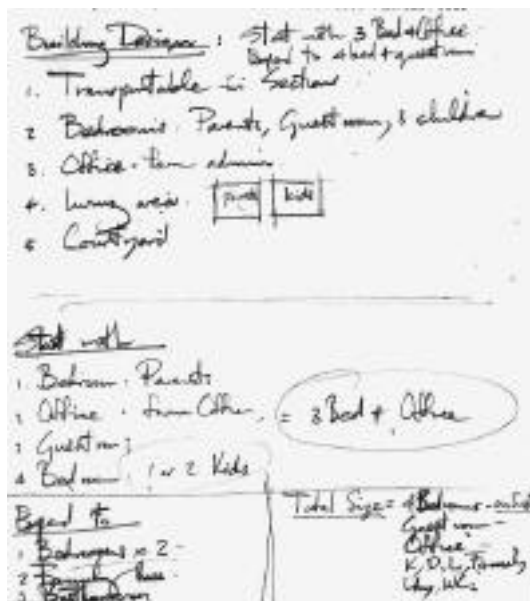 Building Designs : Start with 3 Bed + Office
Expand to 4 bed + guest room
1. Transportable in Sections
2 Bedrooms. Parents, Guest room, 3 children
3. Office - farm admin
4. Living areas. parents kids
5 Courtyard
Start with
1. Bedroom. Parents
2 Office . farm Office, = 3 Bed + Office
3 Guest room
4 Bedroom 1 or 2 Kids
Expand to
1 Bedrooms x 2
2 Family
3
Total Size = 4 Bedrooms
Guest room
Office
K, D, L, Family